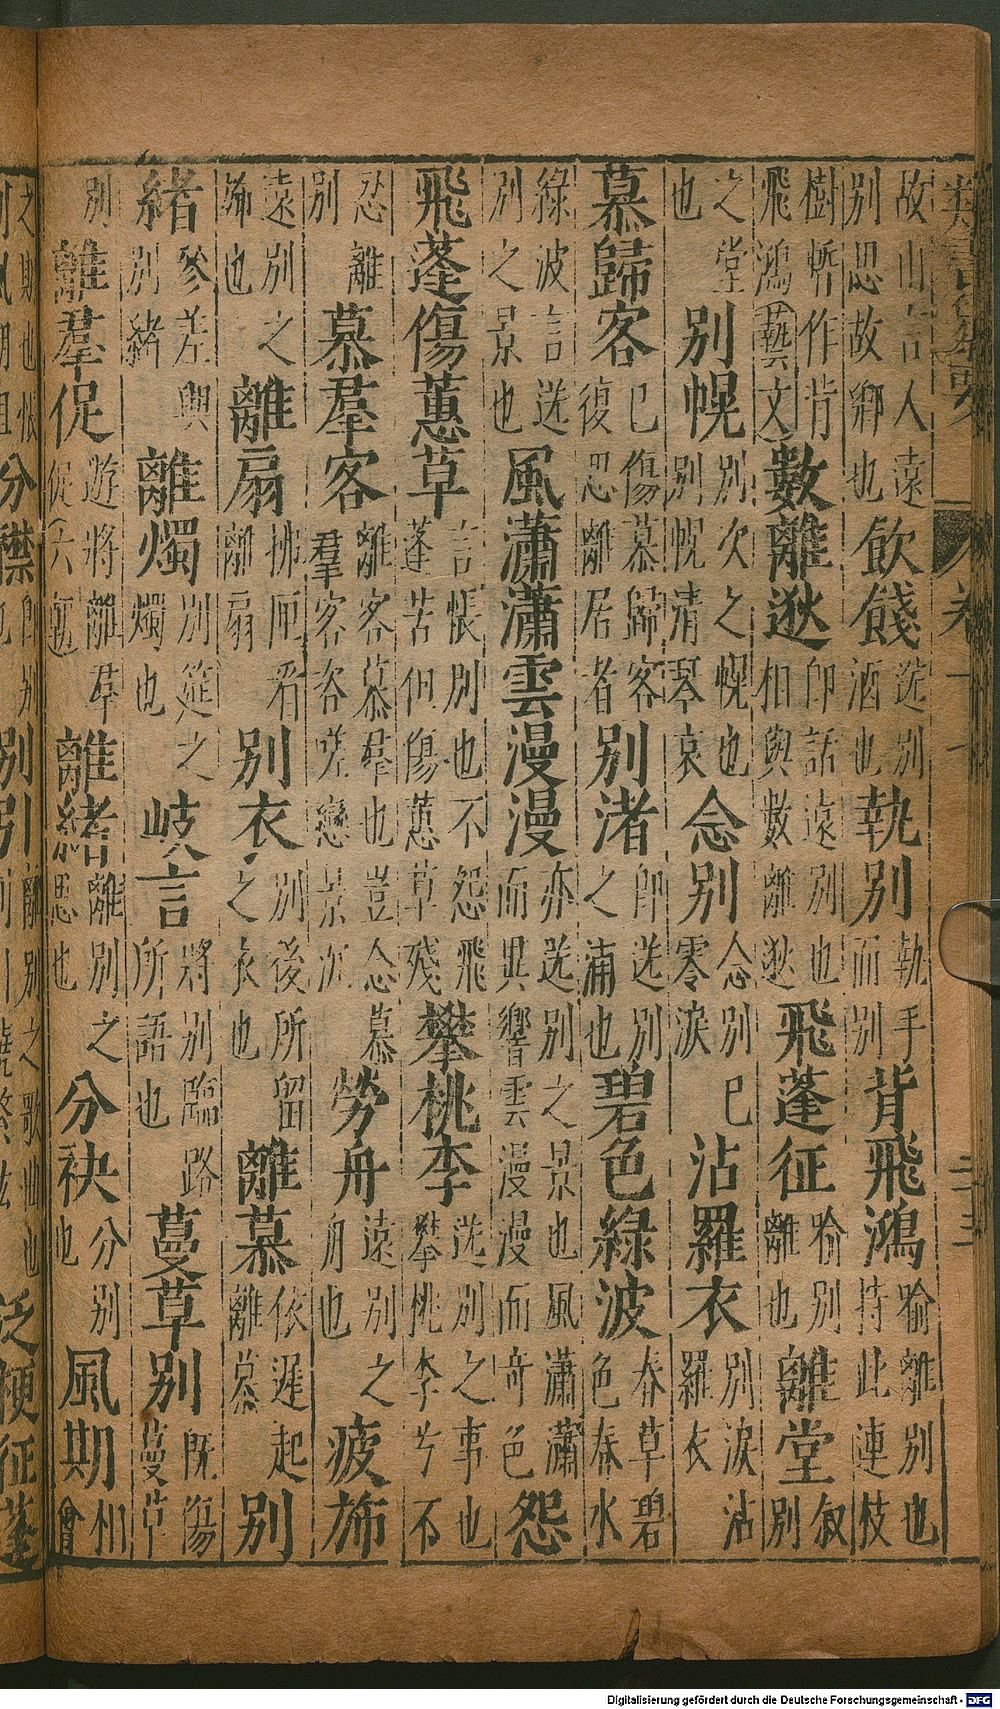 故山言人遠別思故鄉也飲餞送別酒也執別執手而別背飛鴻喻離別也持此連枝
樹暫作背飛鴻藝文數離逖即話遠別也相與數離逖飛蓬征喻別離也離堂敘別
之堂也別幌別次之幌也別幌清琴哀念別念別已零淚沾羅衣別淚沾羅衣
慕歸客已傷慕歸客復思離居者別渚即送別之浦也碧色綠波春草碧色春水
綠波言送別之景也風瀟瀟雲漫漫亦送別之景也風瀟瀟而異響雲漫漫而奇色怨
飛蓬傷蕙草言悵別也不怨飛蓬苦但傷蕙草殘攀桃李送別之事也攀桃李兮不
忍離別慕羣客離客慕羣也豈念慕羣客咨嗟戀景沉勞舟遠別之舟也疲斾
遠別之斾也離扇拂匣看離扇別衣別後所留之衣也離慕依遲起離慕別
緒參差興別緒離燭別筵之燭也岐言將別臨路所語也蔓草別既傷蔓草
別離羣促遊將離羣促六離緒離別之思也分袂分別也風期州會
之期也悵別風期阻分襟即別也別引離別之歌曲也泛梗征蓬
Digitalisierung gefördert durch die Deutsche Forschungsgemeinschaft - DFG